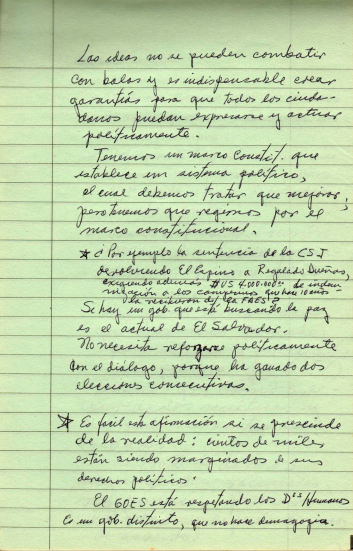 Las ideas no se pueden combatir
con balas y es indispensable crear
garantías para que todos los ciuda-
danos puedan expresarse y actuar
políticamente.
Tenemos un marco Constit. que
establece un sistema político,
el cual debemos tratar que mejorar;
pero tenemos que regirnos por el
marco constitucional.
* ¿Por ejemplo la sentencia de la CSJ
devolviendo El Espino a Regalado Dueñas,
exigiendo además $US 4.000.000.00 de indem
nización a los campesinos que hace 10 años
la recibieron del FAES?
Si hay un gob. que esté buscando la paz
es el actual de El Salvador.
No necesita reforzarse políticamente
con el diálogo, porque ha ganado dos
elecciones consecutivas.
* Es fácil esta afirmación si se prescinde
de la realidad: cientos de miles
están siendo marginados de sus
derechos políticos.
El GOES está respetando los D.os Humanos
Es un gob. distinto, que no hace demagogia.